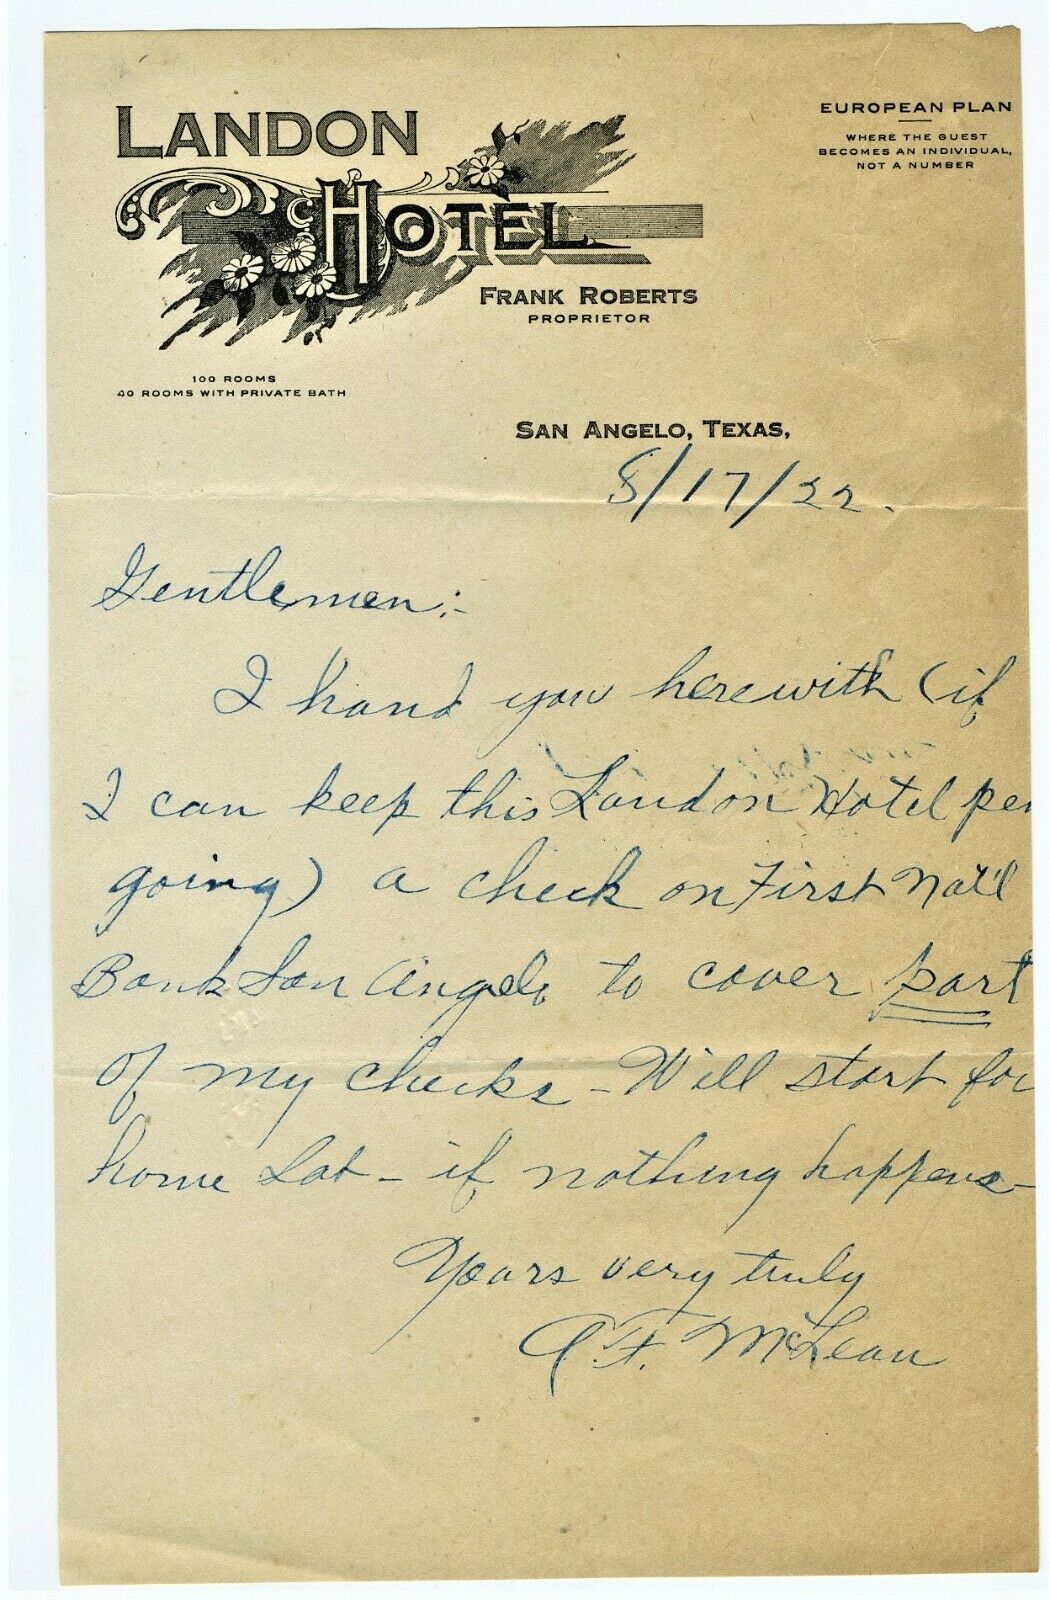 LANDON
HOTEL
FRANK ROBERTS
PROPRIETOR
EUROPEAN PLAN
WHERE THE GUEST
BECOMES AN INDIVIDUAL,
NOT A NUMBER
100 ROOMS
40 ROOMS WITH PRIVATE BATH
SAN ANGELO, TEXAS,
8/17/22.
Gentlemen:-
I hand you herewith (if
I can keep this Landon Hotel pen
going) a check on First Nat'l
Bank San Angelo to cover part
of my checks - Will start for
home Sat - if nothing happens -
Yours very truly
McLean